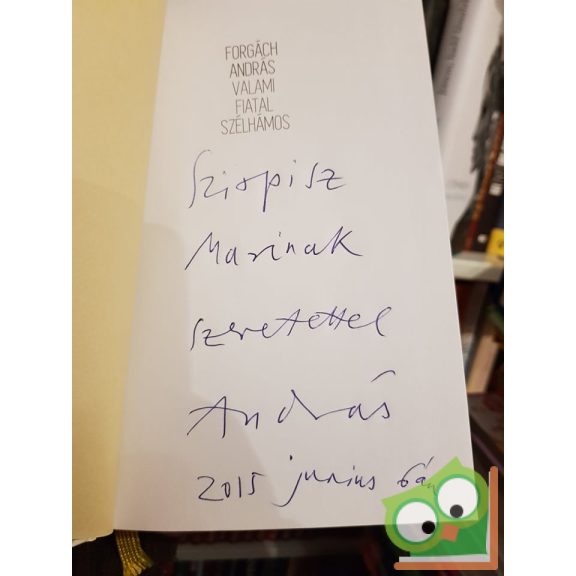 FORGÁCH
ANDRÁS
VALAMI
FIATAL
SZÉLHÁMOS
Sziopisz
Marinak
szeretettel
András
2015 junius 6án